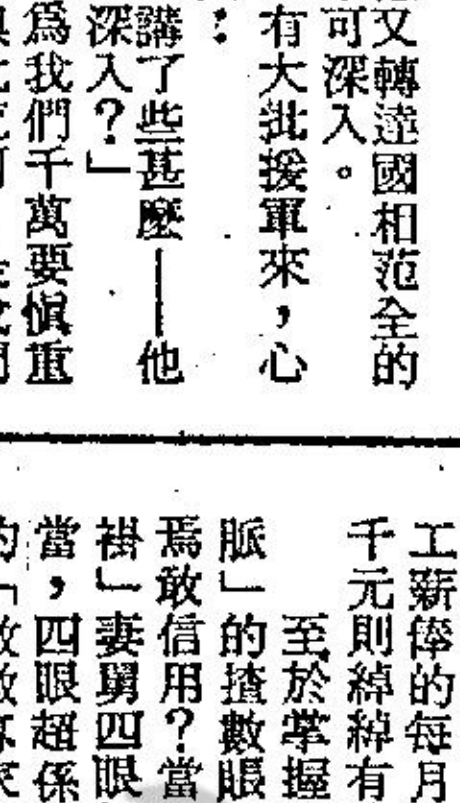 又轉達國相范全的
可深入。
有大批援軍來，心
：
講了些甚麼——他
深入？」
爲我們千萬要愼重
工薪俸的每月
千元則綽綽有
至於掌握
脈」的揸數賬
焉敢信用？當
褂」妻舅四眼
當，四眼超係